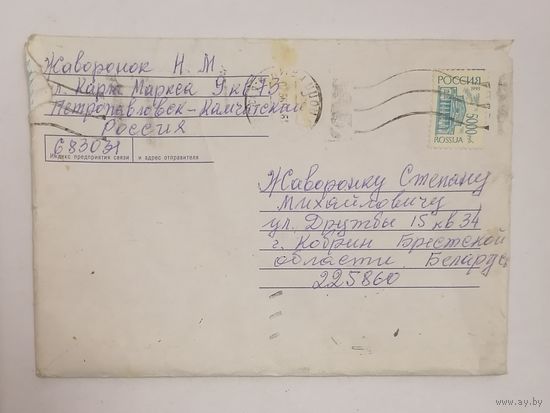 Жаворонок Н. М.
ул. Карла Маркса 9 кв 73
Петропавловск-Камчатский
Россия
683031
Индекс предприятия связи и адрес отправителя
РОССИЯ
1995
5000
р.
ROSSIJA
Жаворонку Степану
Михайловичу
ул. Дружбы 15 кв 34
г. Кобрин Брестской
области. Беларусь
225860
www.ay.by